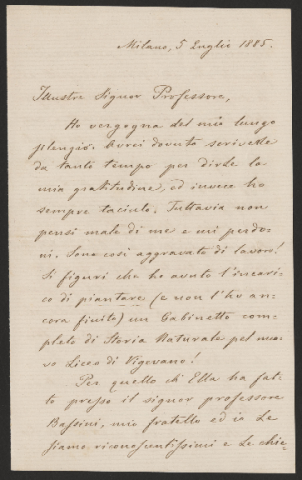 Milano, 5 Luglio 1885.
Illustre Signor Professore,
Ho vergogna del mio lungo
silenzio. Avrei dovuto scriverle
da tanto tempo per dirle la
mia gratitudine, ed invece ho
sempre taciuto. Tuttavia non
pensi male di me e mi perdo-
ni. Sono così aggravato di lavoro!
Si figuri che ho avuto l'incari-
co di piantare (e non l'ho an-
cora finito) un Gabinetto com-
pleto di Storia Naturale pel nuo-
vo Liceo di Vigevano!
Per quello ch'Ella ha fat-
to presso il signor professore
Bassini, mio fratello ed io Le
siamo riconoscentissimi e Le chie-